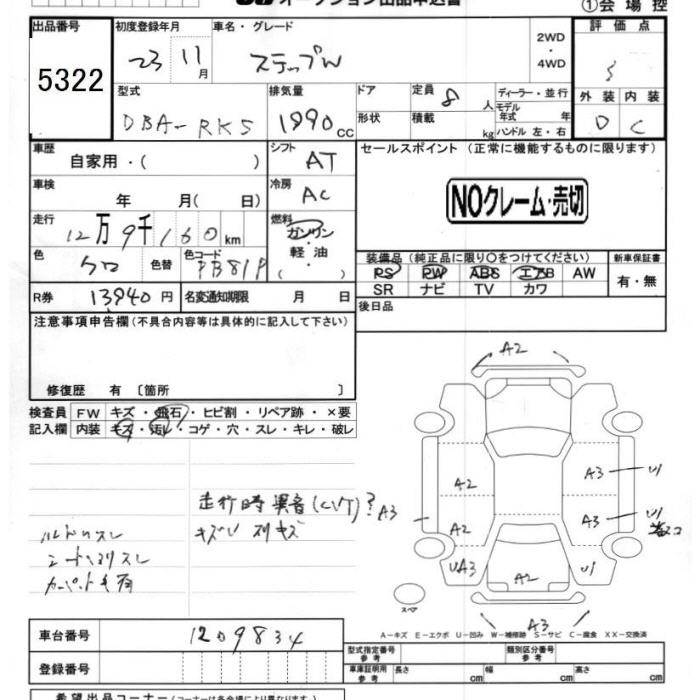 オークション出品申込書
①会場控
出品番号 初度登録年月 車名・グレード 2WD ・ 4WD 評価点
5322 23 11月 ステップW 3
型式 排気量 ドア 定員 8人 ディーラー・並行 外装 内装
DBA-RK5 1990cc 形状 積載 kg モデル年式 年 ハンドル 左・右 D C
車歴 自家用・( ) シフト AT セールスポイント (正常に機能するものに限ります)
車検 年 月( 日) 冷房 AC NOクレーム・売切
走行 12万9千160km 燃料 ガソリン
軽・油 ・( )
色 クロ 色替 色コード PB81P 装備品 (純正品に限り○をつけてください) 新車保証書
PS PW ABS エアB AW 有・無
R券 13940円 名変通知期限 月 日 SR ナビ TV カワ
注意事項申告欄 (不具合内容等は具体的に記入して下さい) 後日品
修復歴 有 〔箇所 〕
検査員 FW キズ・飛石・ヒビ割・リペア跡・×要
記入欄 内装 キズ・汚れ・コゲ・穴・スレ・キレ・破レ
A2
A2 A3 U1
走行時異音(CVT)? A3
キズU スリキズ A2 A3 U1
ハンドルスレ
シートヘリスレ UA3 A2 U1
カーペット毛羽
スペア
A3
A-キズ E-エクボ U-凹み W-補修跡 S-サビ C-腐食 XX-交換済
車台番号 1209834
型式指定番号 参考 類別区分番号 参考
登録番号 車庫証明用 参考 長さ cm 幅 cm 高さ cm
希望出品コーナー (コーナーは各会場により異なります)